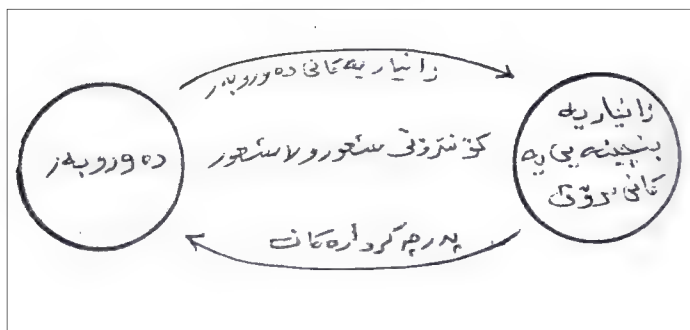 زانیاریەکانی دەوروبەر
دەوروبەر
کۆنترۆڵی شعور ولاشعور
زانیاریە
بنچینەییە
کانی مرۆڤ
پەرچەکردارەکان